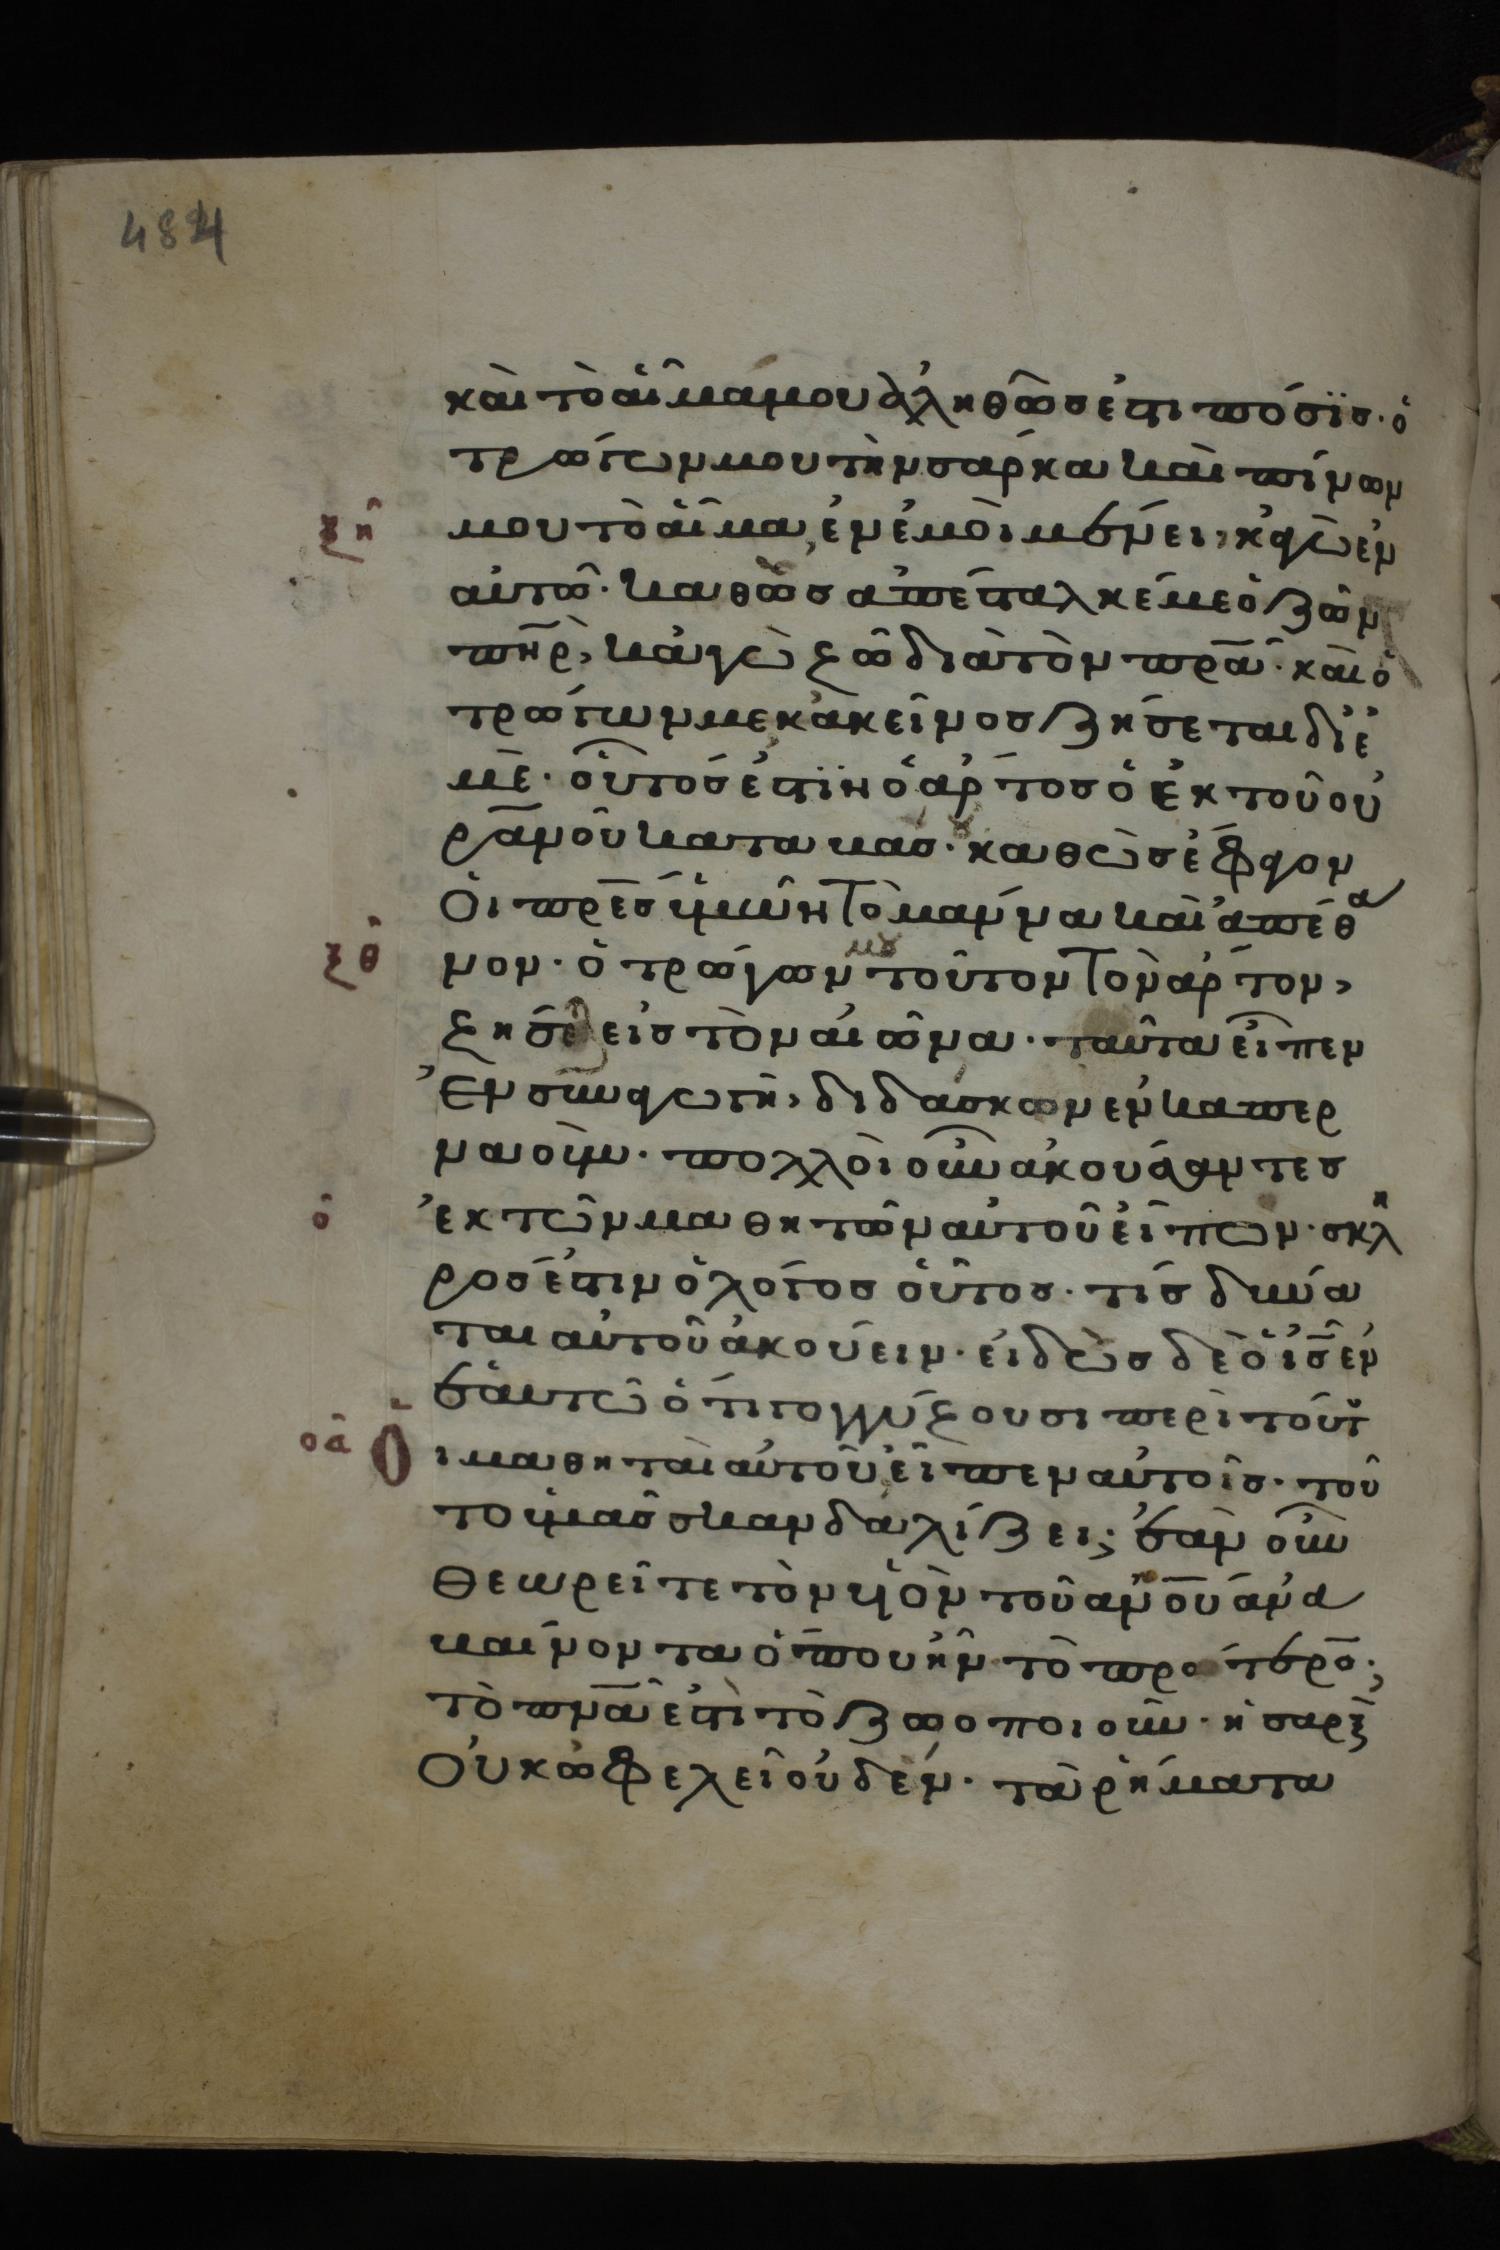 484
καὶ τὸ αἷμα μου ἀληθῶς ἐστι πόσϊς· ὁ
τρώγων μου τὴν σάρκα καὶ πίνων
ξη μου τὸ αἷμα, ἐν ἐμοὶ μένει, κἀγὼ ἐν
αὐτῶ· καθὼς ἀπέσταλκέ με ὁ ζῶν
πηρ, κἀγὼ ζῶ διὰ τὸν πρα· καὶ ὁ
τρώγων με κἀκεῖνος ζήσεται δι' ἐ
μέ· οὗτός ἐστϊν ὁ ἄρτος ὁ ἐκ τοῦ οὐ
ρανοῦ καταβας· καθὼς ἔφαγον
ξθ Οἱ πρες ἡμῶν τὸ μάννα καὶ ἀπέθα
νον· ὁ τρώγων μου τοῦτον τὸν ἄρτον,
ζήσει εἰς τὸν αἰῶνα· ταῦτα εἶπεν
Ἐν συναγωγῆ, διδάσκων ἐν καπερ
ναούμ· πολλοὶ οὖν ἀκούσαντες
ο ἐκ τῶν μαθητῶν αὐτοῦ εἶπων· σκλη
ρός ἐστιν ὁ λόγος οὗτος· τίς δύνα
ται αὐτοῦ ἀκούειν· εἰδὼς δὲ ὁ ις ἐν
ἑαυτῶ ὅτι γογγύζουσι περὶ τούτου
οα Ο ι μαθηταὶ αὐτοῦ εἶπεν αὐτοῖς· τοῦ
το ὑμᾶς σκανδαλίζει; ἐὰν οὖν
Θεωρεῖτε τὸν υἱὸν τοῦ ανου ἀνα
βαίνοντα ὅπου ἦν τὸ πρότερο·;
τὸ πνα ἐστὶ τὸ ζωοποιοῦν· ἡ σαρξ
Οὐκ ὠφελεῖ οὐδέν· τὰ ῥήματα